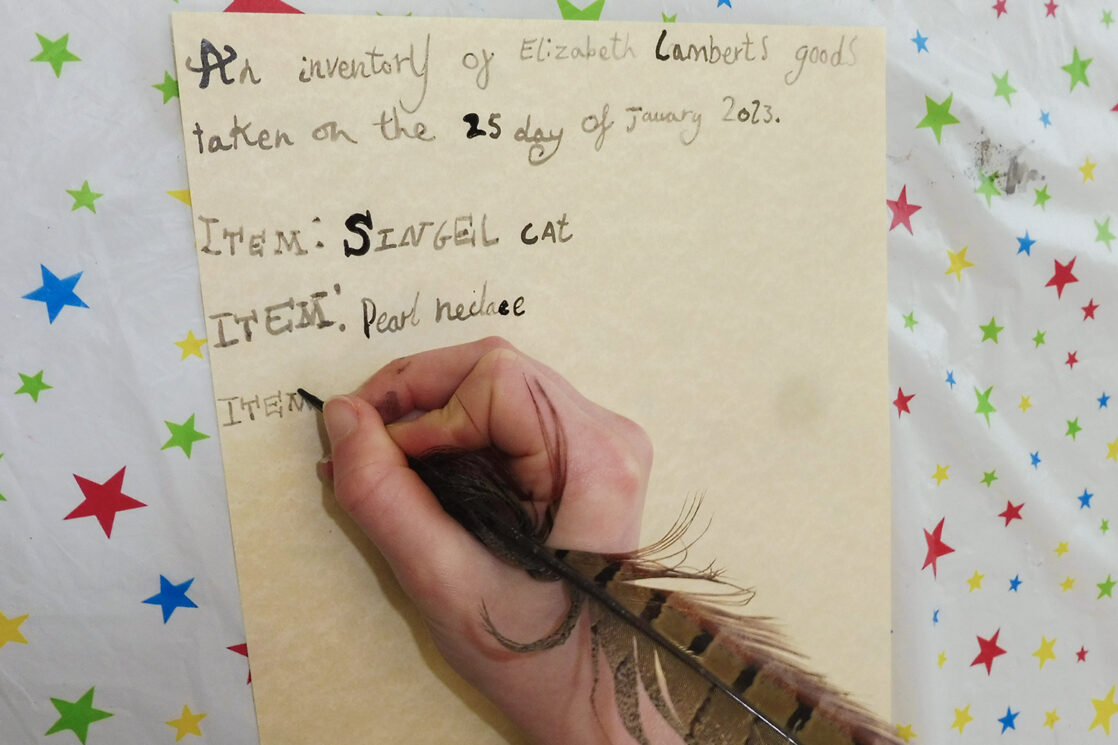 An inventory of Elizabeth Lamberts goods
taken on the 25 day of Jauary 2023.
ITEM: SINGEL cat
ITEM: Pearl neclace
ITEM